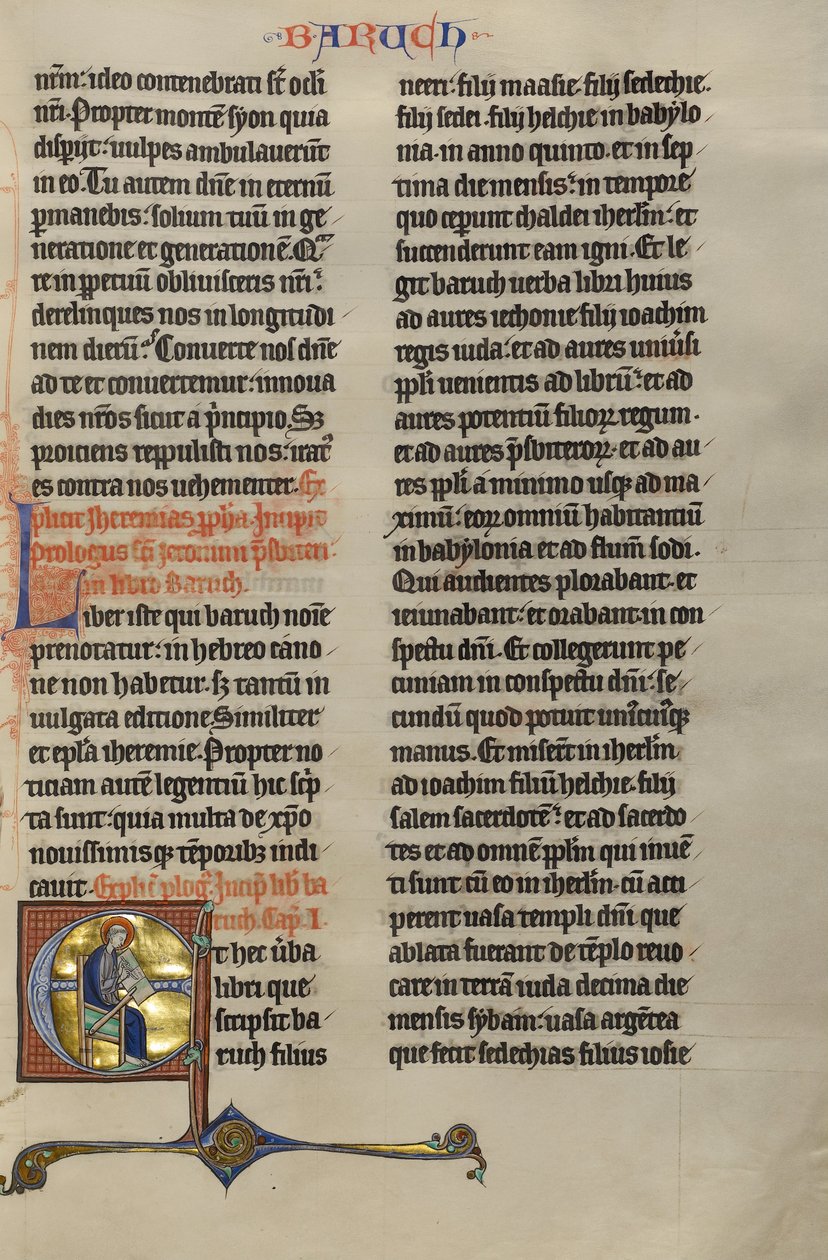 BARUCH
nr̄m: ideo contenebrati st̄ ocl̄i
nr̄i. Propter montē syon quia
disp̄ijt: uulpes ambulauerūt
in eo. Tu autem dn̄e in eternū
ꝑmanebis: solium tuū in ge
neratione et generationē. Qᷓ
re in ꝑpetuū obliuisceris nr̄i:
derelinques nos in longitudi
nem dierū: Conuerte nos dn̄e
ad te et conuertemur: innoua
dies nr̄os sicut a p̄ncipio. Sꝫ
proiciens reppulisti nos: irat᷒
es contra nos uehementer. Ex
plicit Jheremias ꝓph̄a. Incipit
prologus sc̄i Jeronimi p̄sbiteri
in libro Baruch.
Liber iste qui baruch noīe
prenotatur: in hebreo cano
ne non habetur. sꝫ tantū in
uulgata editione Similiter
et epl̄a iheremie. Propter no
ticiam autē legentiū hic scⁱp
ta sunt: quia multa de xp̄o
nouissimisqꝫ tēporibꝫ indi
cauit. Explic̄ ꝓlog᷒. Incip̄ lib̄ ba
ruch. Cap̄. I.
Et hec ūba
libri que
scripsit ba
ruch filius
neeri: filij maasie. filij sedechie.
filij sedei. filij helchie in babylo
nia. in anno quinto. et in sep
tima die mensis: in tempore
quo ceperunt chaldei iherl̄m: et
succenderunt eam igni. Et le
git baruch uerba libri huius
ad aures iechonie filij ioachim
regis iuda: et ad aures uniūsi
ppl̄i uenientis ad librū: et ad
aures potentiū filioꝝ regum.
et ad aures p̄sbiteroꝝ. et ad au
res ppl̄i a minimo usqꝫ ad ma
ximū: eoꝝ omnium habitantiū
in babylonia et ad flum̄ sodi.
Qui audientes plorabant. et
ieiunabant: et orabant in con
spectu dn̄i. Et collegerunt pe
cuniam in conspectu dn̄i: se
cundū quod potuit uni᷒cui᷒qꝫ
manus. Et miser̄t in iherl̄m
ad ioachim filiū helchie. filij
salem sacerdotē: et ad sacerdo
tes et ad omnē ppl̄m qui inuē
ti sunt cū eo in iherl̄m. cū acci
perent uasa templi dn̄i que
ablata fuerant de tēplo reuo
care in terrā iuda decima die
mensis syban: uasa argētea
que fecit sedechias filius iosie